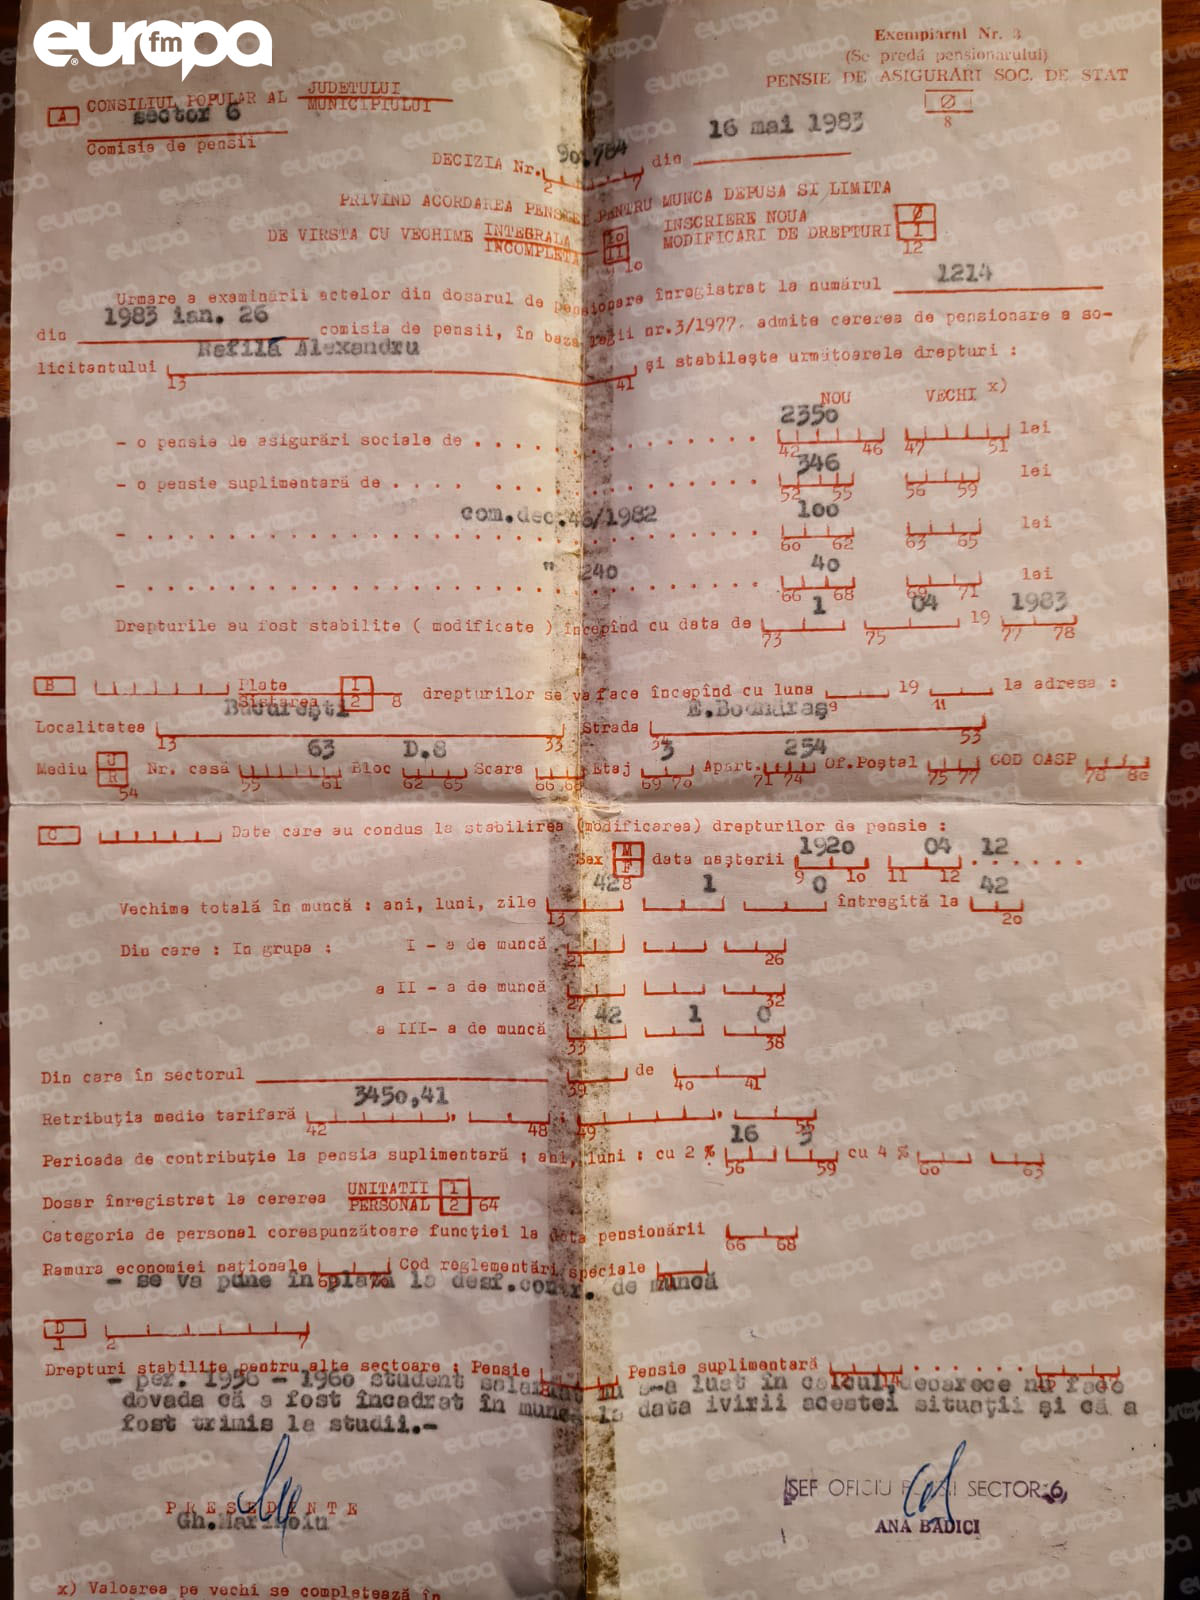 europa fm
Exemplarul Nr. 3
(Se predă pensionarului)
PENSIE DE ASIGURĂRI SOC. DE STAT
Ø
8
A CONSILIUL POPULAR AL JUDETULUI
MUNICIPIULUI
sector 6
Comisia de pensii
16 mai 1983
DECIZIA Nr. 90.784 din
2 7
PRIVIND ACORDAREA PENSIEI PENTRU MUNCA DEPUSA SI LIMITA
DE VIRSTA CU VECHIME INTEGRALA 10 INSCRIERE NOUA Ø
INCOMPLETA 11 MODIFICARI DE DREPTURI 1
9 10 12
Urmare a examinării actelor din dosarul de pensionare înregistrat la numărul 1214
din 1983 ian. 26 comisia de pensii, în baza legii nr.3/1977. admite cererea de pensionare a so-
licitantului Rafilă Alexandru și stabilește următoarele drepturi :
13 41
NOU VECHI x)
- o pensie de asigurări sociale de . . . 2350 lei
42 46 47 51
- o pensie suplimentară de . . . . 346 lei
52 55 56 59
- com.dec.46/1982 100 lei
60 62 63 65
- " 240 40 lei
66 68 69 71
Drepturile au fost stabilite ( modificate ) începînd cu data de 1 04 19 1983
73 75 77 78
B Plata 1
Sistarea 2 8 drepturilor se va face începînd cu luna 19 la adresa :
9 11
Localitatea București Strada
13 33 34 53
Mediu U R Nr. casă 63 Bloc D.8 Scara Etaj 3 Apart. 254 Of.Poștal COD OASP
54 55 61 62 65 66 68 69 70 71 74 75 77 78 80
C Date care au condus la stabilirea (modificarea) drepturilor de pensie :
Sex M F data nașterii 1920 04 12
8 9 10 11 12
Vechime totală în muncă : ani, luni, zile 42 1 0 întregită la 42
13 20
Din care : In grupa : I - a de muncă
21 26
a II - a de muncă
27 32
a III- a de muncă 42 1 0
33 38
Din care în sectorul de
39 40 41
Retribuția medie tarifară 3450,41
42 48 49 55
Perioada de contribuție la pensia suplimentară ; ani, luni : cu 2 % 16 3 cu 4 %
56 59 60 63
Dosar înregistrat la cererea UNITATII 1
PERSONAL 2 64
Categoria de personal corespunzătoare funcției la data pensionării
66 68
Ramura economiei naționale Cod reglementări speciale
- se va pune în plată la desf.contr. de muncă
D
1 2 7
Drepturi stabilite pentru alte sectoare : Pensie Pensie suplimentară
- per. 1956 - 1960 student salariat nu s-a luat în calcul, deoarece nu face
dovada că a fost încadrat în muncă la data ivirii acestei situații și că a
fost trimis la studii.-
PRESEDINTE
Gh.Marinoiu
ȘEF OFICIU SECTOR 6,
ANA BADICI
x) Valoarea pe vechi se completează în